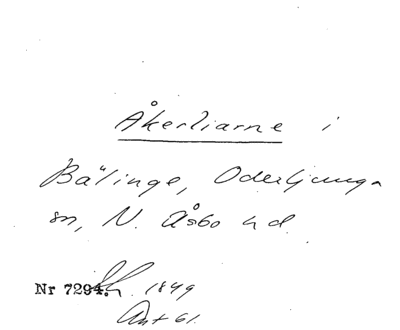 Åkerliarne i
Bälinge, Oderljunga
sn, N. Åsbo hd.
Nr 7294. 1849
Ant 61.